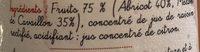 Ingrédients : Fruits 75 % (Abricot 40%, Melon
de Cavaillon 35%), concentré de jus de raisin
acidifié, acidifiant : jus concentré de citron.